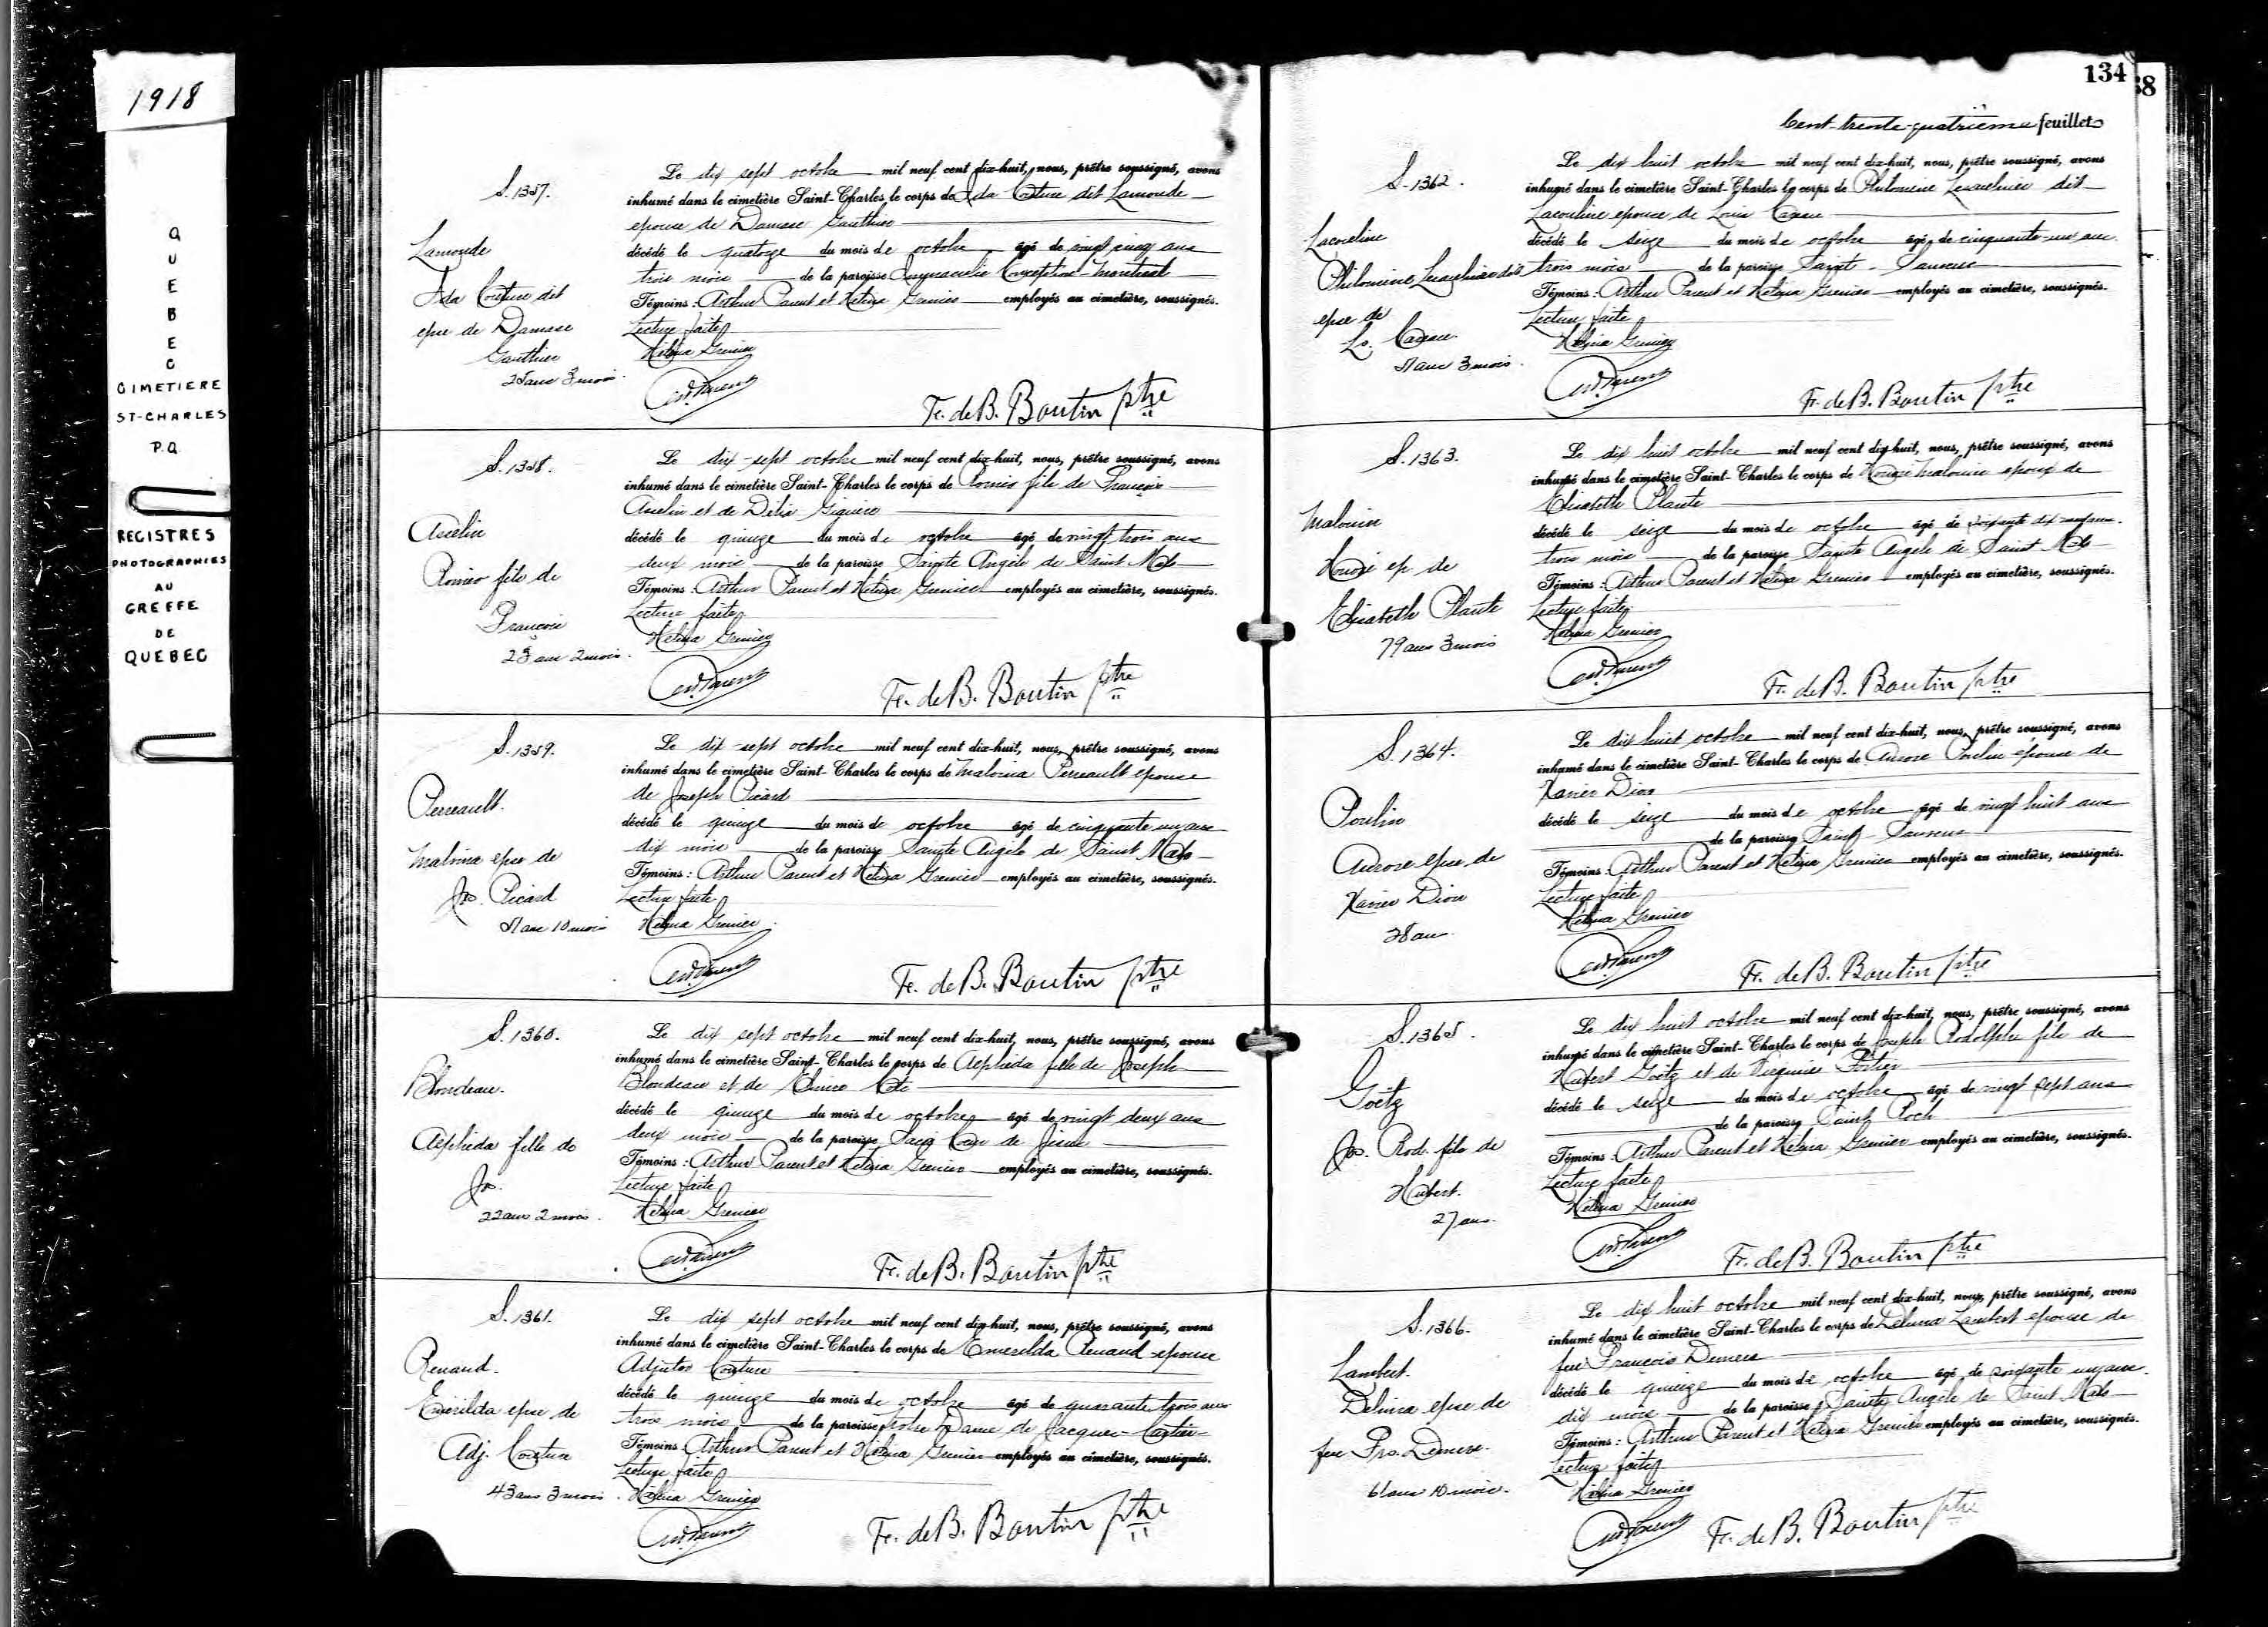 1918
QUEBEC
CIMETIERE
ST-CHARLES
P.Q.
REGISTRES
PHOTOGRAPHIES
AU
GREFFE
DE
QUEBEC
S. 1357.
Lamonde
Ida Couture dit
epse de Damase
Gauthier
25 ans 3 mois.
Le dix sept octobre mil neuf cent dix-huit, nous, prêtre soussigné, avons
inhumé dans le cimetière Saint-Charles le corps de Ida Couture dit Lamonde
epouse de Damase Gauthier
décédé le quatorze du mois de octobre âgé de vingt cinq ans
trois mois de la paroisse Immaculée Conception - Montréal
Témoins : Arthur Parent et Helyna Grenier employés au cimetière, soussignés.
Lecture faite
Helyna Grenier
Art. Parent
Fr. de B. Boutin ptre
S. 1358.
Asselin
Roméo fils de
François
23 ans 2 mois.
Le dix-sept octobre mil neuf cent dix-huit, nous, prêtre soussigné, avons
inhumé dans le cimetière Saint-Charles le corps de Roméo fils de François
Asselin et de Délia Giguère
décédé le quinze du mois de octobre âgé de vingt trois ans
deux mois de la paroisse Sainte Angèle de Saint Malo
Témoins : Arthur Parent et Helyna Grenier employés au cimetière, soussignés.
Lecture faite
Helyna Grenier
Art. Parent
Fr. de B. Boutin ptre
S. 1359.
Perreault.
Malvina epse de
Jos. Picard
51 ans 10 mois
Le dix-sept octobre mil neuf cent dix-huit, nous, prêtre soussigné, avons
inhumé dans le cimetière Saint-Charles le corps de Malvina Perreault epouse
de Joseph Picard
décédé le quinze du mois de octobre âgé de cinquante un ans
dix mois de la paroisse Sainte Angèle de Saint Malo
Témoins : Arthur Parent et Helyna Grenier employés au cimetière, soussignés.
Lecture faite
Helyna Grenier
Art. Parent
Fr. de B. Boutin ptre
S. 1360.
Blondeau.
Alphéda fille de
Jos.
22 ans 2 mois.
Le dix sept octobre mil neuf cent dix-huit, nous, prêtre soussigné, avons
inhumé dans le cimetière Saint-Charles le corps de Alphéda fille de Joseph
Blondeau et de Coté
décédé le quinze du mois de octobre âgé de vingt deux ans
deux mois de la paroisse Sacré Coeur de Jésus
Témoins : Arthur Parent et Helyna Grenier employés au cimetière, soussignés.
Lecture faite
Helyna Grenier
Art. Parent
Fr. de B. Boutin ptre
S. 1361.
Renaud.
Emérilda epse de
Adj. Couture
43 ans 3 mois.
Le dix sept octobre mil neuf cent dix-huit, nous, prêtre soussigné, avons
inhumé dans le cimetière Saint-Charles le corps de Emerilda Renaud epouse
Adjutor Couture
décédé le quinze du mois de octobre âgé de quarante trois ans
trois mois de la paroisse Notre Dame de Jacques-Cartier
Témoins : Arthur Parent et Helyna Grenier employés au cimetière, soussignés.
Lecture faite
Helyna Grenier
Art. Parent
Fr. de B. Boutin ptre
134
38
Cent-trente-quatrième feuillet
S. 1362.
Lacouline
epse de
Ls. Caveau
51 ans 3 mois.
Le dix huit octobre mil neuf cent dix-huit, nous, prêtre soussigné, avons
inhumé dans le cimetière Saint-Charles le corps de Philomène dit
epouse de Louis
décédé le seize du mois de octobre âgé de cinquante-un ans
trois mois de la paroisse Saint-Sauveur
Témoins : Arthur Parent et Helyna Grenier employés au cimetière, soussignés.
Lecture faite
Helyna Grenier
Art. Parent
Fr. de B. Boutin ptre
S. 1363.
Malouin
Honoré ep. de
Elisabeth Plante
79 ans 3 mois
Le dix huit octobre mil neuf cent dix-huit, nous, prêtre soussigné, avons
inhumé dans le cimetière Saint-Charles le corps de Honoré Malouin epoux de
Elisabeth Plante
décédé le seize du mois de octobre âgé de soixante dix neuf ans.
trois mois de la paroisse Sainte Angèle de Saint Malo
Témoins : Arthur Parent et Helyna Grenier employés au cimetière, soussignés.
Lecture faite
Helyna Grenier
Art. Parent
Fr. de B. Boutin ptre
S. 1364.
Poulin
Aurore epse de
Xavier Dion
28 ans
Le dix huit octobre mil neuf cent dix-huit, nous, prêtre soussigné, avons
inhumé dans le cimetière Saint-Charles le corps de Aurore Poulin epouse de
Xavier Dion
décédé le seize du mois de octobre âgé de vingt huit ans
de la paroisse Saint-Sauveur
Témoins : Arthur Parent et Helyna Grenier employés au cimetière, soussignés.
Lecture faite
Helyna Grenier
Art. Parent
Fr. de B. Boutin ptre
S. 1365.
Goëtz
Jos. Rod. fils de
Hubert.
27 ans.
Le dix huit octobre mil neuf cent dix-huit, nous, prêtre soussigné, avons
inhumé dans le cimetière Saint-Charles le corps de Joseph Rodolphe fils de
Hubert Goëtz et de Virginie Fortier
décédé le seize du mois de octobre âgé de vingt sept ans
de la paroisse Saint Roch
Témoins : Arthur Parent et Helyna Grenier employés au cimetière, soussignés.
Lecture faite
Helyna Grenier
Art. Parent
Fr. de B. Boutin ptre
S. 1366.
Lambert.
Delima epse de
feu Frs. Demers.
61 ans 10 mois.
Le dix huit octobre mil neuf cent dix-huit, nous, prêtre soussigné, avons
inhumé dans le cimetière Saint-Charles le corps de Delima Lambert epouse de
feu François Demers
décédé le quinze du mois de octobre âgé de soixante un ans.
dix mois de la paroisse Sainte Angèle de Saint Malo
Témoins : Arthur Parent et Helyna Grenier employés au cimetière, soussignés.
Lecture faite
Helyna Grenier
Art. Parent
Fr. de B. Boutin ptre